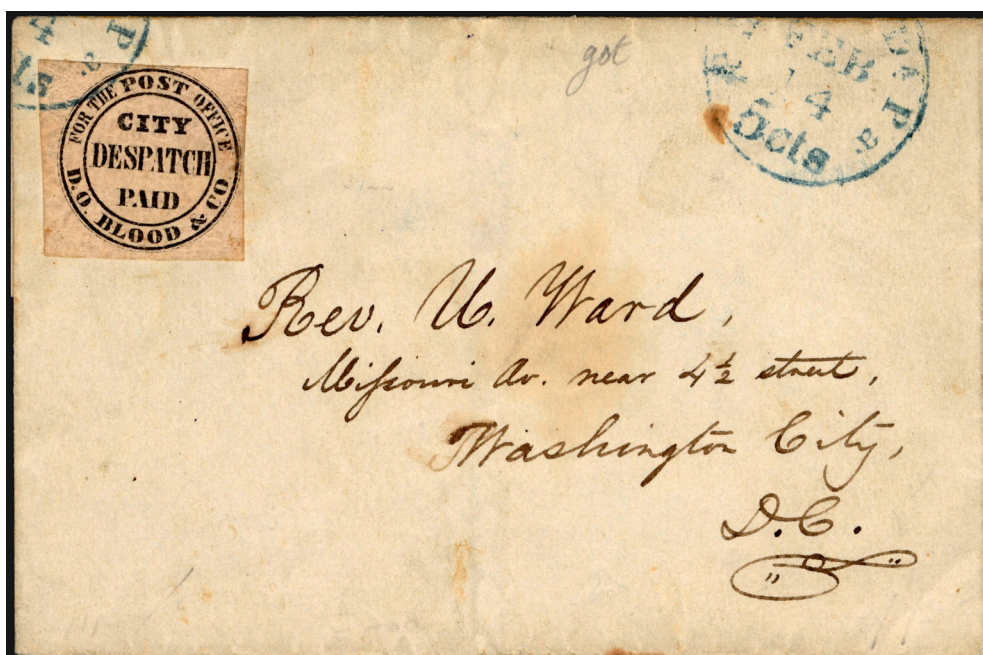 P
4
a.
cts
FOR THE POST OFFICE
CITY
DESPATCH
PAID
D.O. BLOOD & CO
got
FEB
14
5cts
Pa.
Rev. U. Ward,
Missouri Av. near 4½ street,
Washington City,
D.C.